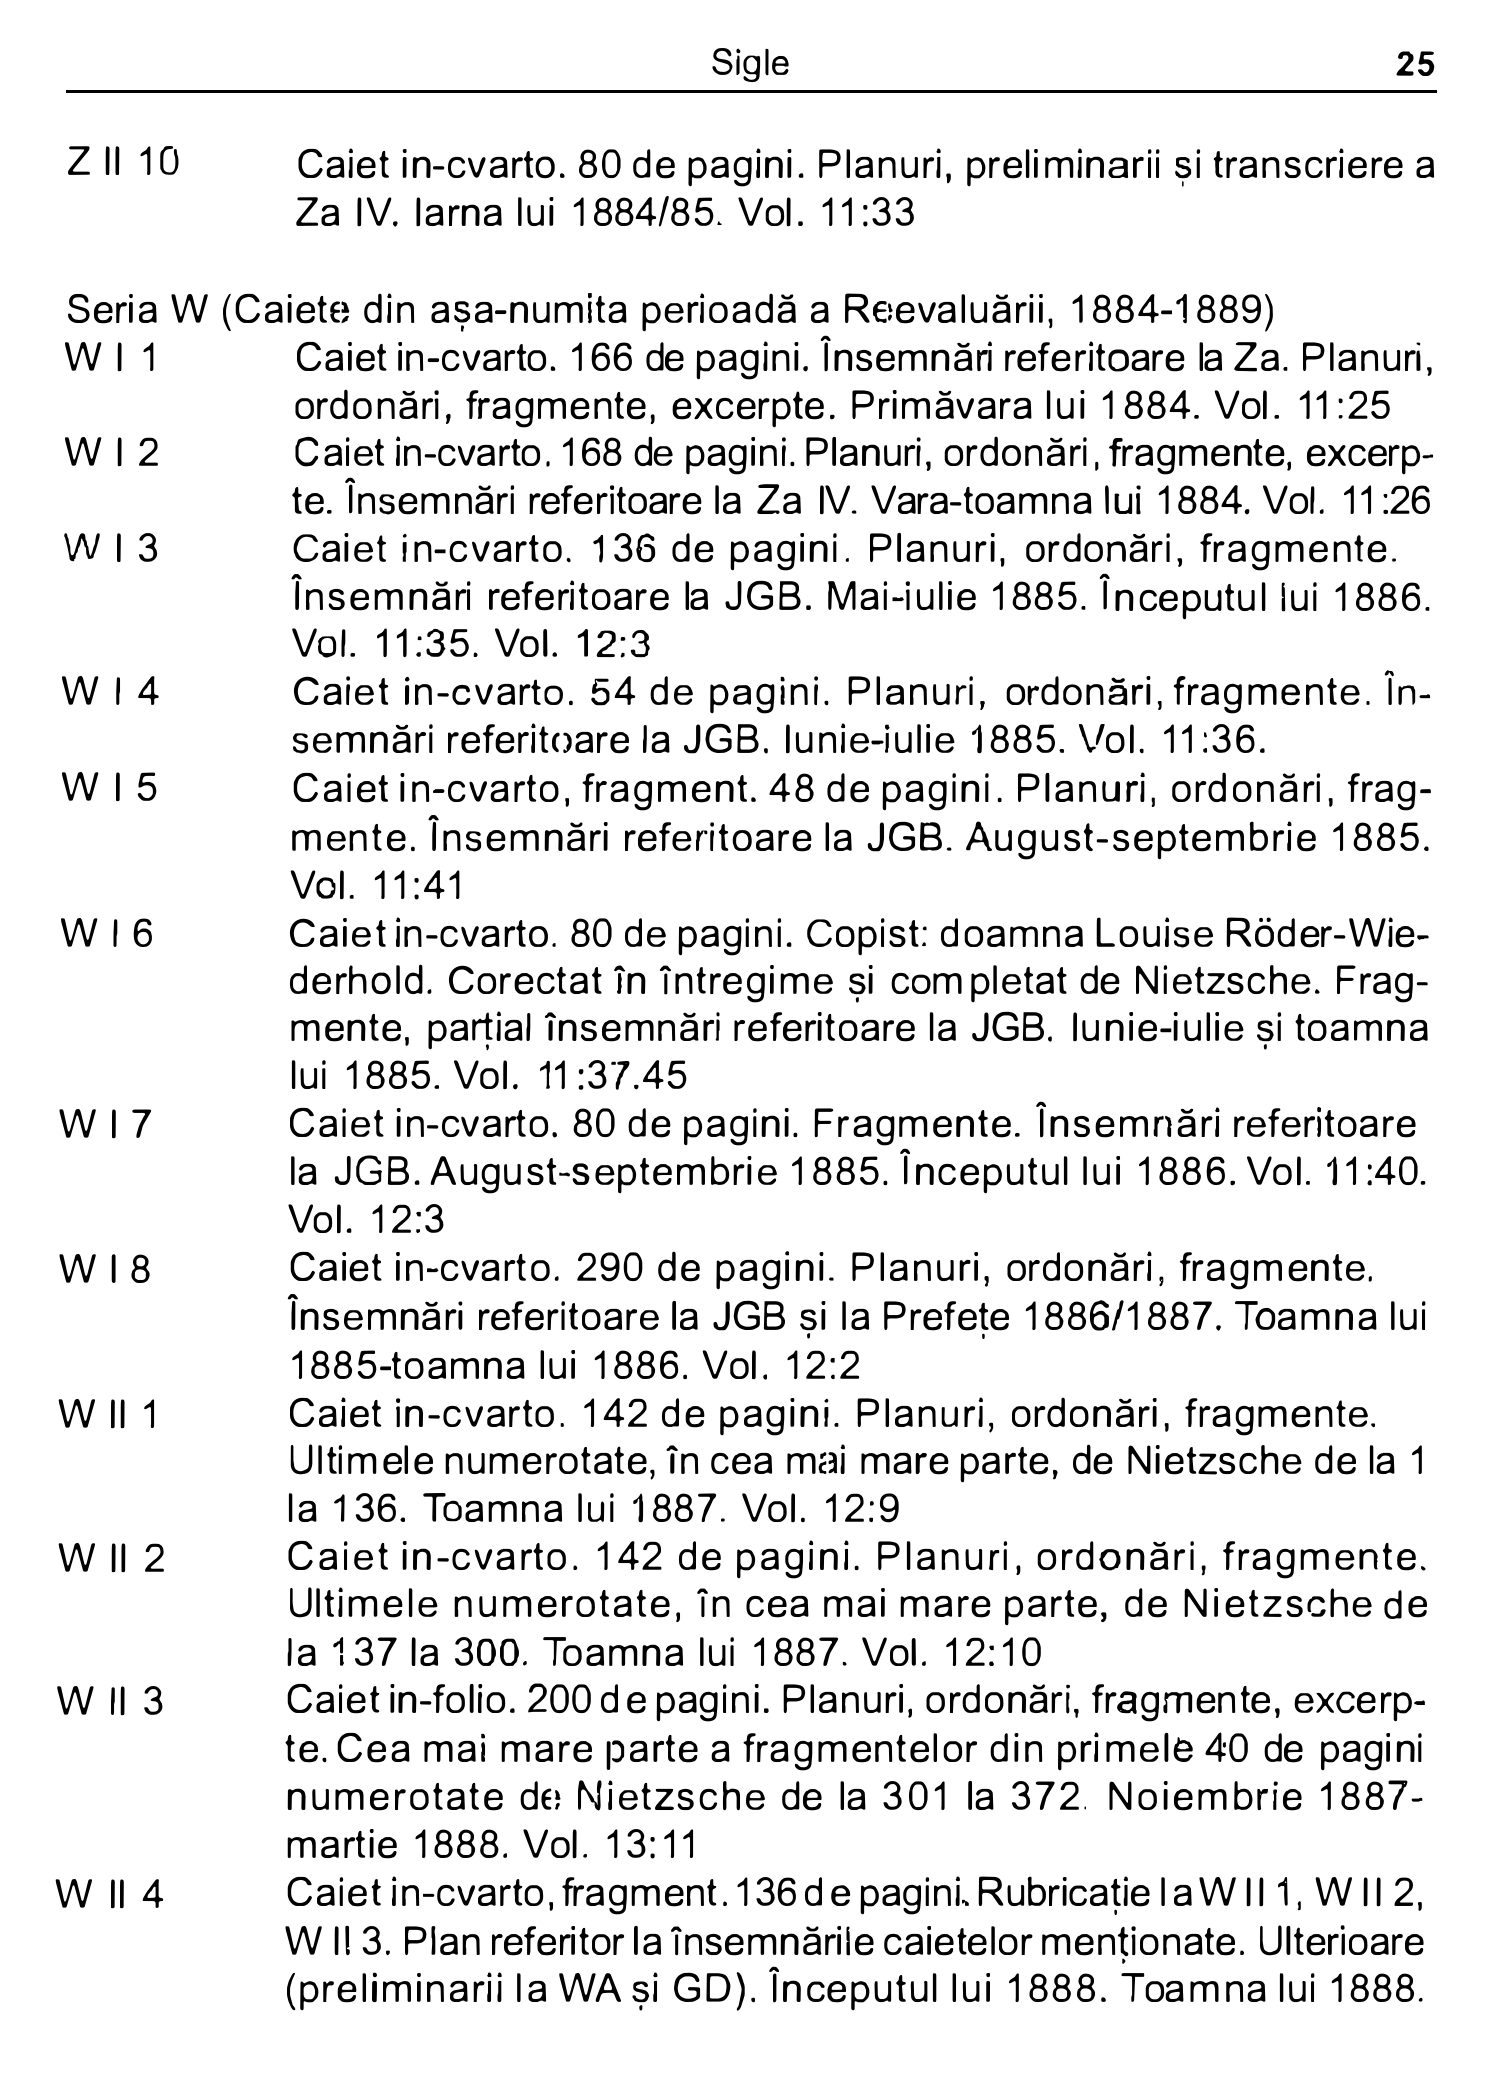 Sigle 25
Z II 10 Caiet in-cvarto. 80 de pagini. Planuri, preliminarii și transcriere a
Za IV. Iarna lui 1884/85. Vol. 11:33
Seria W (Caiete din așa-numita perioadă a Reevaluării, 1884-1889)
W I 1 Caiet in-cvarto. 166 de pagini. Însemnări referitoare la Za. Planuri,
ordonări, fragmente, excerpte. Primăvara lui 1884. Vol. 11:25
W I 2 Caiet in-cvarto. 168 de pagini. Planuri, ordonări, fragmente, excerp-
te. Însemnări referitoare la Za IV. Vara-toamna lui 1884. Vol. 11:26
W I 3 Caiet in-cvarto. 136 de pagini. Planuri, ordonări, fragmente.
Însemnări referitoare la JGB. Mai-iulie 1885. Începutul lui 1886.
Vol. 11:35. Vol. 12:3
W I 4 Caiet in-cvarto. 54 de pagini. Planuri, ordonări, fragmente. În-
semnări referitoare la JGB. Iunie-iulie 1885. Vol. 11:36.
W I 5 Caiet in-cvarto, fragment. 48 de pagini. Planuri, ordonări, frag-
mente. Însemnări referitoare la JGB. August-septembrie 1885.
Vol. 11:41
W I 6 Caiet in-cvarto. 80 de pagini. Copist: doamna Louise Röder-Wie-
derhold. Corectat în întregime și completat de Nietzsche. Frag-
mente, parțial însemnări referitoare la JGB. Iunie-iulie și toamna
lui 1885. Vol. 11:37.45
W I 7 Caiet in-cvarto. 80 de pagini. Fragmente. Însemnări referitoare
la JGB. August-septembrie 1885. Începutul lui 1886. Vol. 11:40.
Vol. 12:3
W I 8 Caiet in-cvarto. 290 de pagini. Planuri, ordonări, fragmente.
Însemnări referitoare la JGB și la Prefețe 1886/1887. Toamna lui
1885-toamna lui 1886. Vol. 12:2
W II 1 Caiet in-cvarto. 142 de pagini. Planuri, ordonări, fragmente.
Ultimele numerotate, în cea mai mare parte, de Nietzsche de la 1
la 136. Toamna lui 1887. Vol. 12:9
W II 2 Caiet in-cvarto. 142 de pagini. Planuri, ordonări, fragmente.
Ultimele numerotate, în cea mai mare parte, de Nietzsche de
la 137 la 300. Toamna lui 1887. Vol. 12:10
W II 3 Caiet in-folio. 200 de pagini. Planuri, ordonări, fragmente, excerp-
te. Cea mai mare parte a fragmentelor din primele 40 de pagini
numerotate de Nietzsche de la 301 la 372. Noiembrie 1887-
martie 1888. Vol. 13:11
W II 4 Caiet in-cvarto, fragment. 136 de pagini. Rubricație la W II 1, W II 2,
W II 3. Plan referitor la însemnările caietelor menționate. Ulterioare
(preliminarii la WA și GD). Începutul lui 1888. Toamna lui 1888.